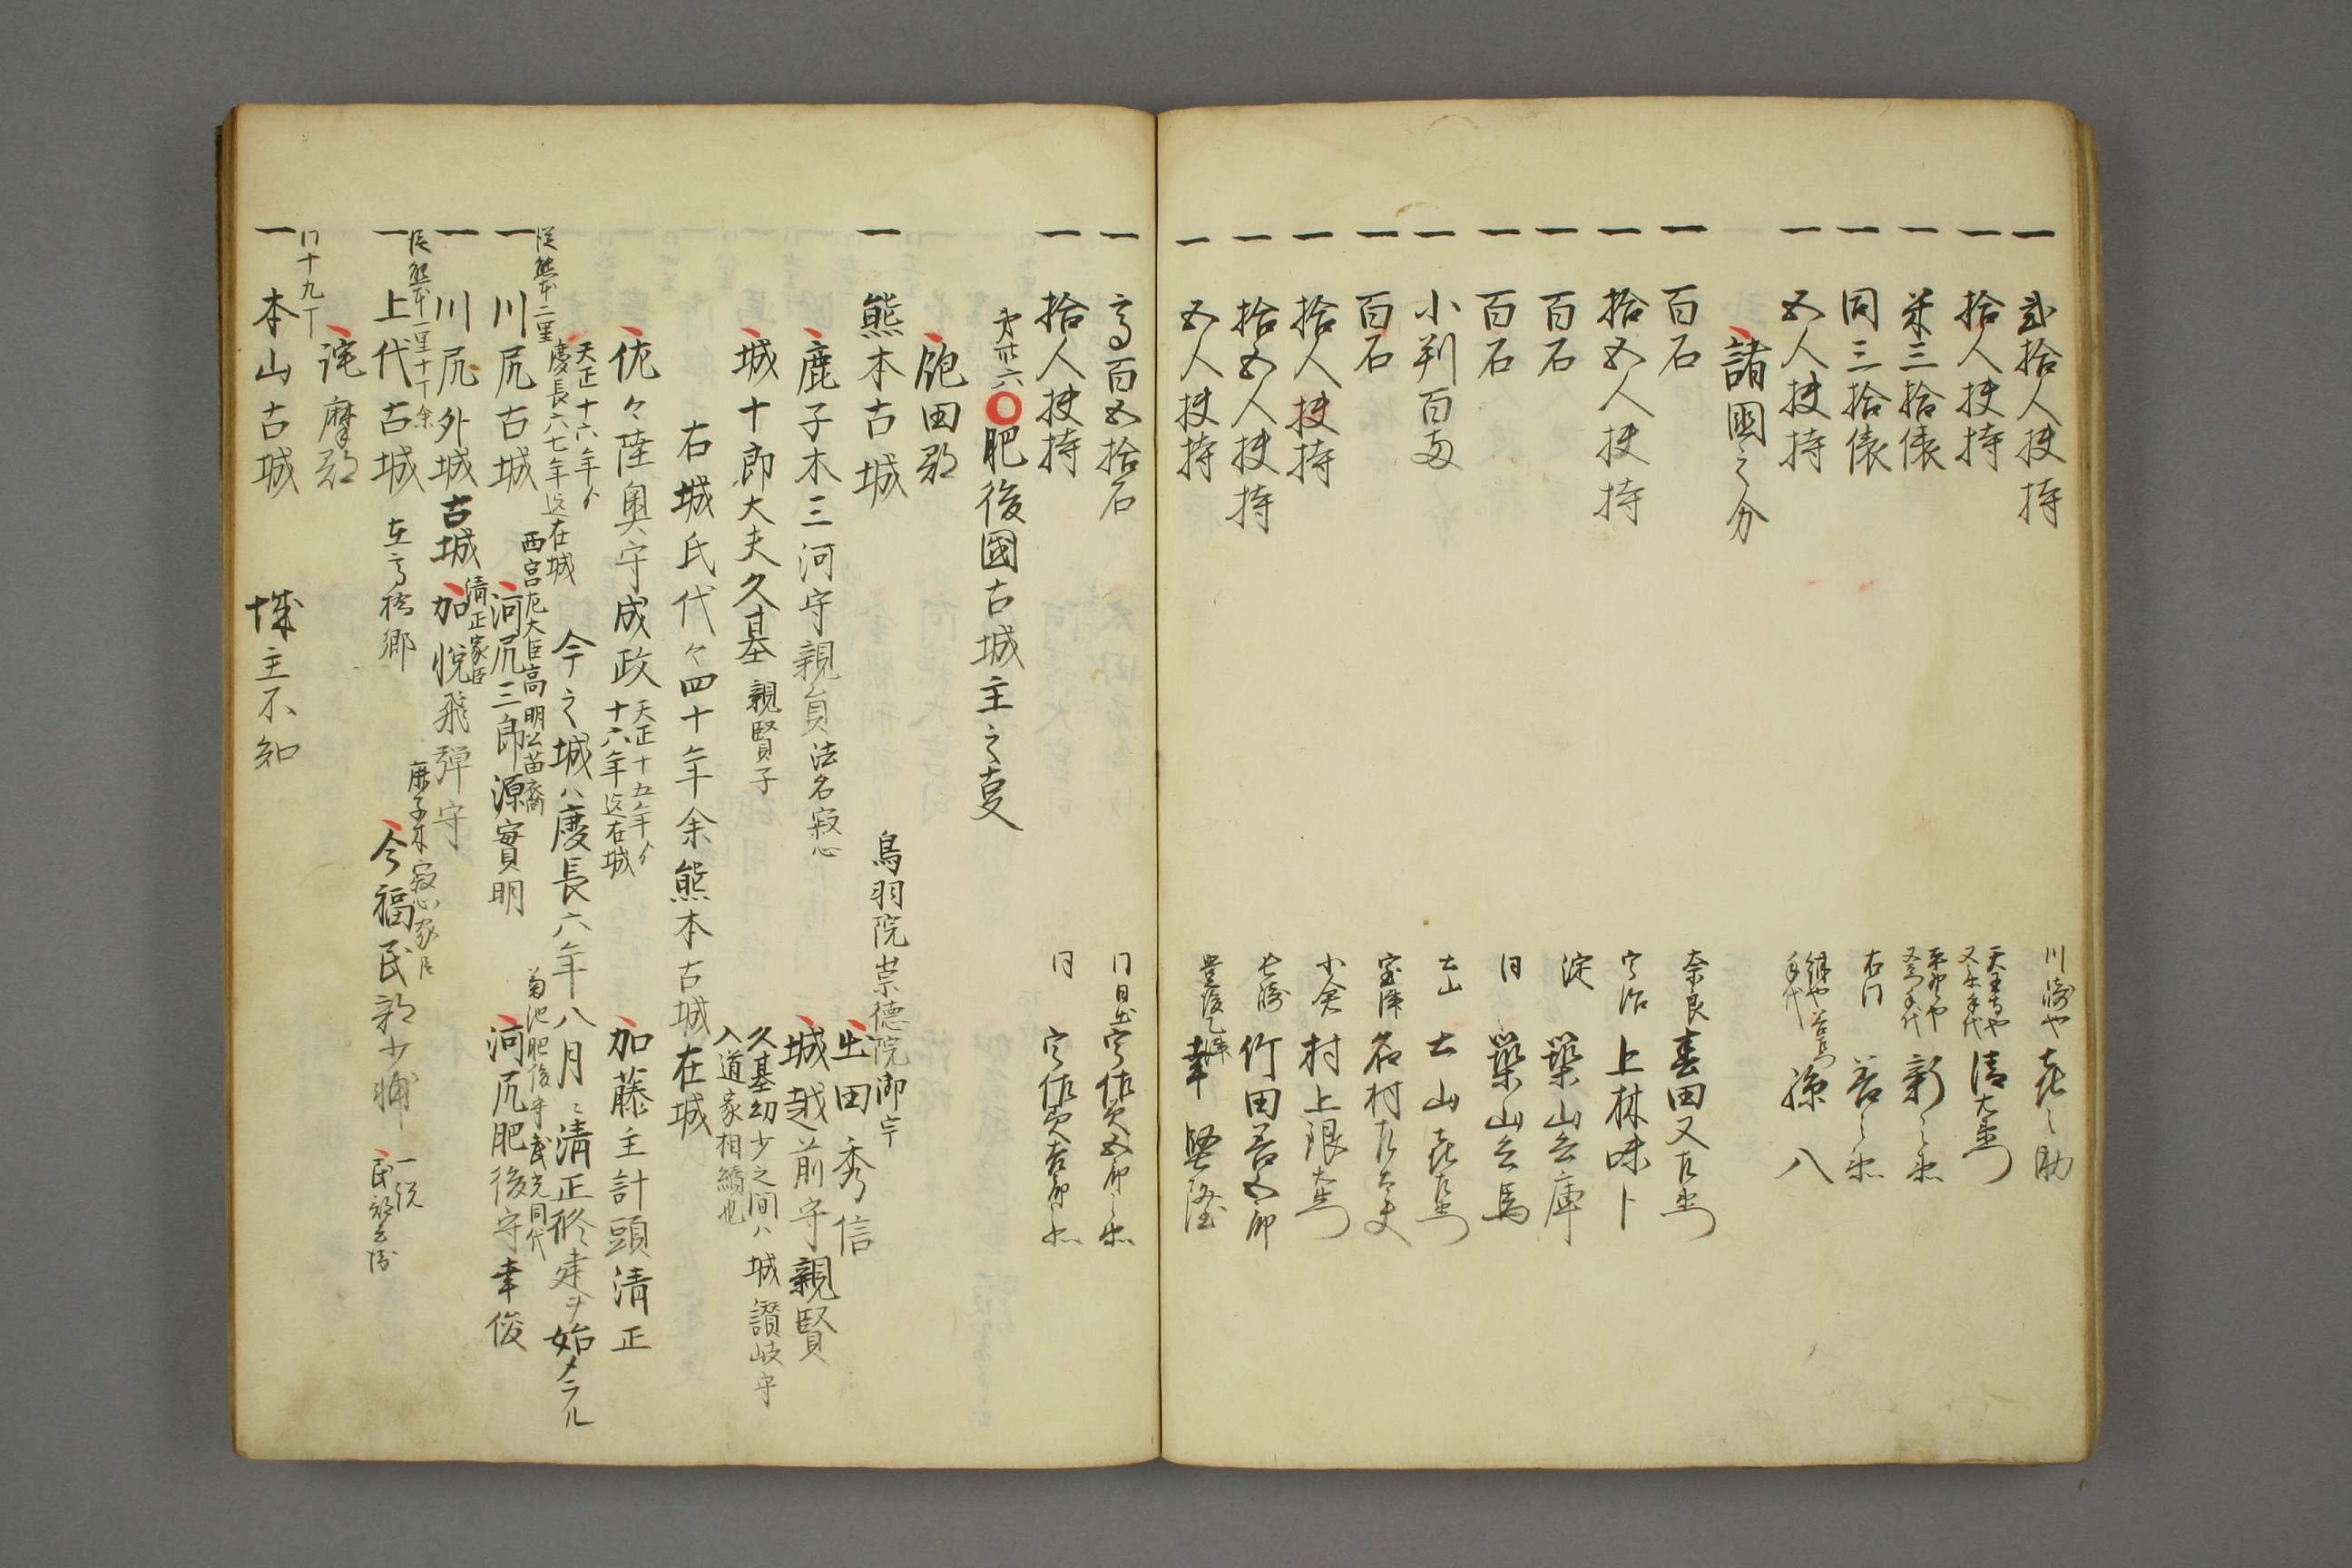 一 弐拾人扶持 川崎や 喜之助
一 拾人扶持 天王寺や 又兵衛手代 清右衛門
一 米三拾俵 平野や 又兵衛手代 新之丞
一 同三拾俵 右同 善之丞
一 五人扶持 手代 孫八
諸國之分
一 百石 奈良 喜田又左衛門
一 拾五人扶持 宇治 上林味卜
一 百石 淀 築山兵庫
一 百石 同 築山兵馬
一 小判百両 大山 大山喜左衛門
一 百石 室津 名村左太夫
一 拾人扶持 小倉 村上銀右衛門
一 拾五人扶持 長崎 竹田善五郎
一 五人扶持 豊後乙津 幸堅隆
一 高百五拾石 同日出 宇佐美五郎之丞
一 拾人扶持 同 宇佐美吉郎之丞
才卅六〇肥後國古城主之叓
飽田郡
一 熊本古城 鳥羽院崇徳院御宇 出田秀信
鹿子木三河守親員 法名寂心 城越前守親賢
城十郎大夫久基 親賢子 久基幼少之間ハ城讃岐守
入道家相續也
右城氏代々四十年余熊本古城在城
佐々陸奥守成政 天正十五年ゟ
十六年迄在城 加藤主計頭清正
天正十六年ゟ
慶長六七年迄在城 今之城ハ慶長六年八月ニ清正修建ヲ始メラル
従熊本二里
一 川尻古城 西宮左大臣高明公苗裔 河尻三郎源實明 菊池肥後守武光同代 河尻肥後守幸俊
一 川尻外城古城 清正家臣 加悦飛彈守
従熊本一里十丁余
一 上代古城 在高橋郷 鹿子木寂心家臣 今福民部少輔 一説
民部兵衛
詫摩郡
同十九丁
一 本山古城 城主不知